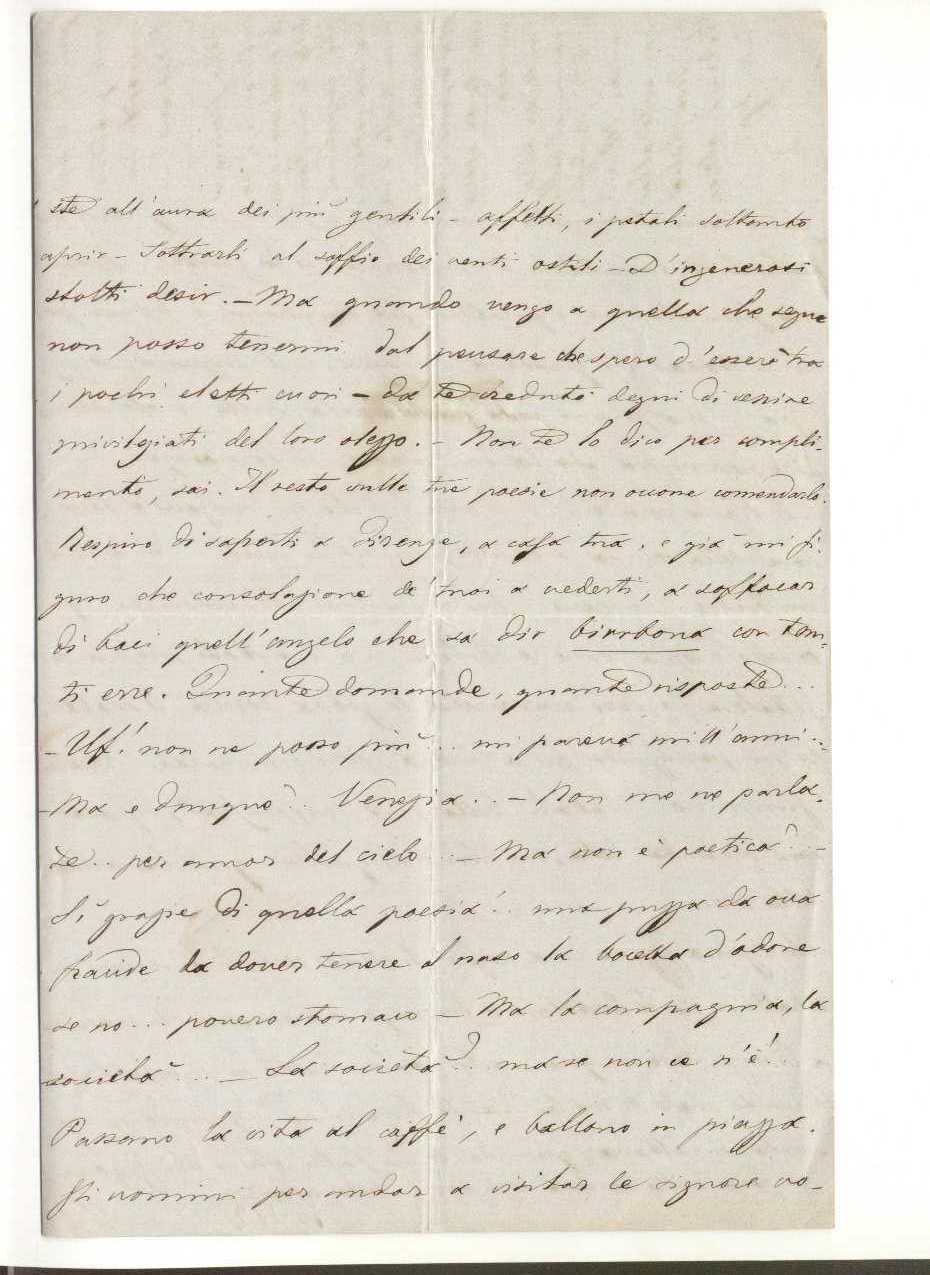 ste all'aura dei più gentili - affetti, i petali soltanto
aprir - Sottrarli al soffio dei venti ostili - D'ingenerosi
stolti desir. - Ma quando vengo a quella che segue
non posso tenermi dal pensare che spero d'essere tra
i pochi eletti cuori - da te creduti degni di venire
privilegiati del loro olezzo. - Non te lo dico per compli-
mento, sai. Il resto sulle tue poesie non occorre comendarlo.
Respiro di saperti a Firenze, a casa tua. e già mi fi-
guro che consolazione de' tuoi a vederti, a soffocar
di baci quell'angelo che sa dir birrbona con tan-
ti erre. Quante domande, quante risposte...
- Uf! non ne posso più... mi pareva mill'anni...
- Ma e dunque?.. Venezia.. - Non me ne parla-
te.. per amor del cielo... - Ma non è poetica?.. -
Sì grazie di quella poesia!.. una puzza da ova
fracide da dover tenere al naso la boccetta d'odore
se no... povero stomaco - Ma la compagnia, la
società... - La società?.. ma se non ce n'è!..
Passano la vita al caffè, e ballano in piazza.
Gli uomini per andar a visitar le signore vo-